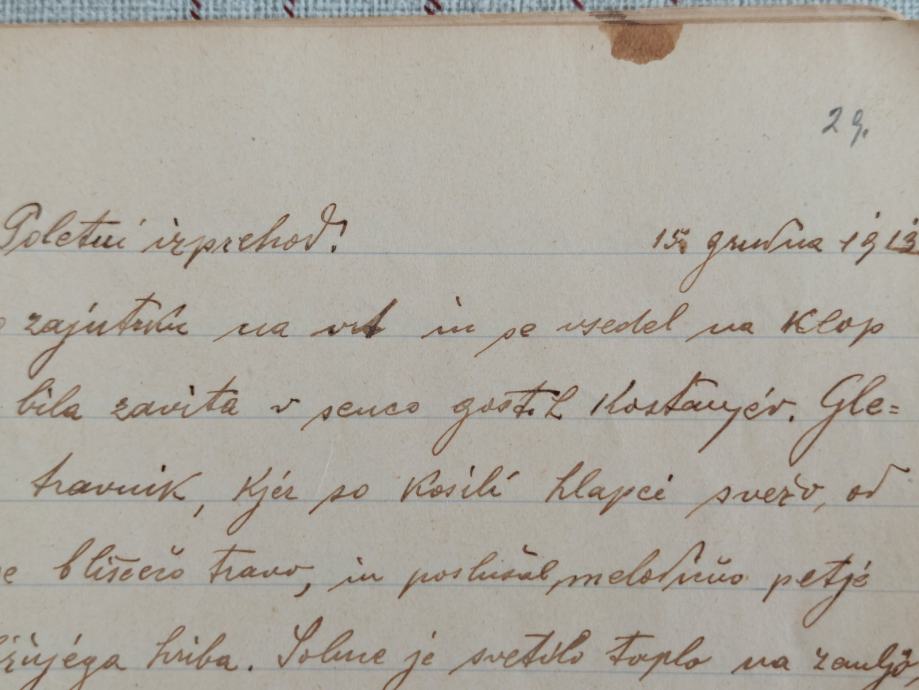 29.
Poletni izprehod! 15. grudna 1913
zajutrku na vrt in se vsedel na klop
bila zavita v senco gostih kostanjev. Gle=
travnik, kjer so kosili hlapci svežo, od
blišečo travo, in poslušal melodično petje
hriba. Solnce je svetilo toplo na zemljo,